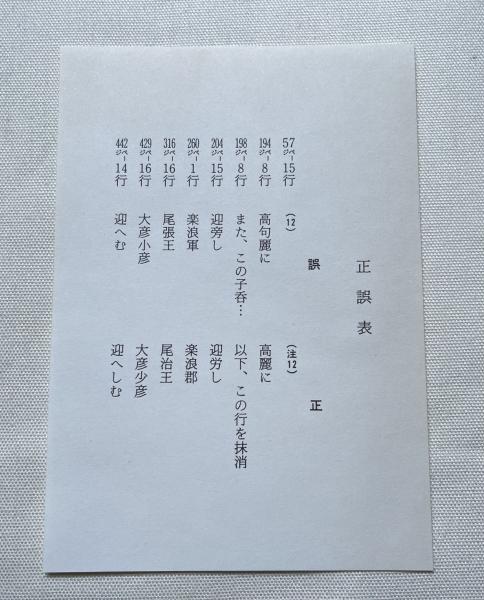 正誤表
誤 正
57ページ15行 （12） （注12）
194ページ8行 高句麗に 高麗に
198ページ8行 また、この子呑… 以下、この行を抹消
204ページ15行 迎旁し 迎労し
260ページ1行 楽浪軍 楽浪郡
316ページ16行 尾張王 尾治王
429ページ16行 大彦小彦 大彦少彦
442ページ14行 迎へむ 迎へしむ